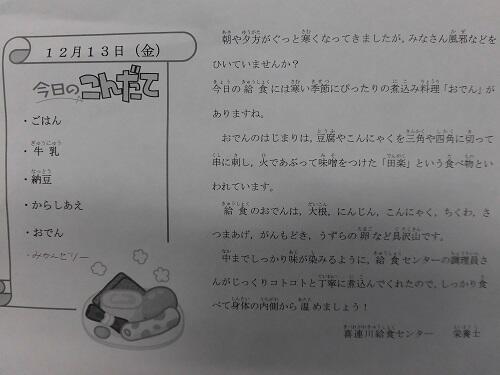 12月13日（金）
今日のこんだて
・ごはん
・牛乳
・納豆
・からしあえ
・おでん
・みかんゼリー
朝や夕方がぐっと寒くなってきましたが、みなさん風邪などを
ひいていませんか？
今日の給食には寒い季節にぴったりの煮込み料理「おでん」が
ありますね。
おでんのはじまりは、豆腐やこんにゃくを三角や四角に切って
串に刺し、火であぶって味噌をつけた「田楽」という食べ物とい
われています。
給食のおでんは、大根、にんじん、こんにゃく、ちくわ、さ
つまあげ、がんもどき、うずらの卵など具沢山です。
中までしっかり味が染みるように、給食センターの調理員さ
んがじっくりコトコトと丁寧に煮込んでくれたので、しっかり食
べて身体の内側から温めましょう！
喜連川給食センター　栄養士